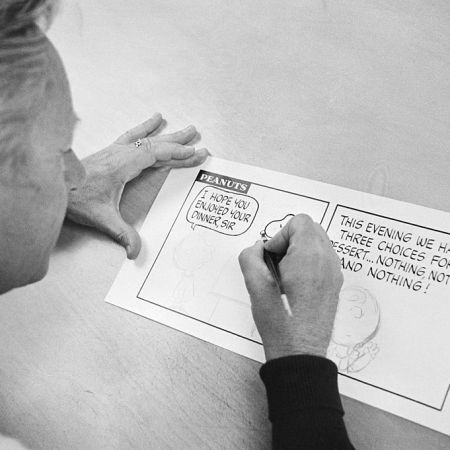 PEANUTS
I HOPE YOU
ENJOYED YOUR
DINNER, SIR
THIS EVENING WE HA
THREE CHOICES FOR
DESSERT... NOTHING, NOT
AND NOTHING!